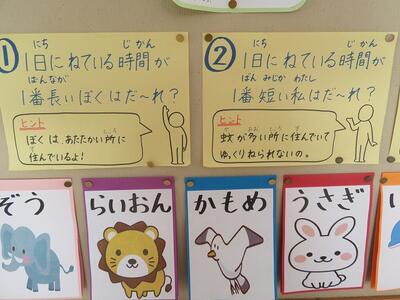 ① 1日にねている時間が
にち じかん
1番長いぼくはだ〜れ?
ばんなが
ヒント
ぼくは、あたたかい所に
ところ
住んでいるよ!
す
② 1日にねている時間が
にち じかん
1番短い私はだ〜れ?
ばん みじか わたし
ヒント
敵が多い所に住んでいて
おお ところ す
ゆっくりねられないの。
ぞう
らいおん
かもめ
うさぎ
い